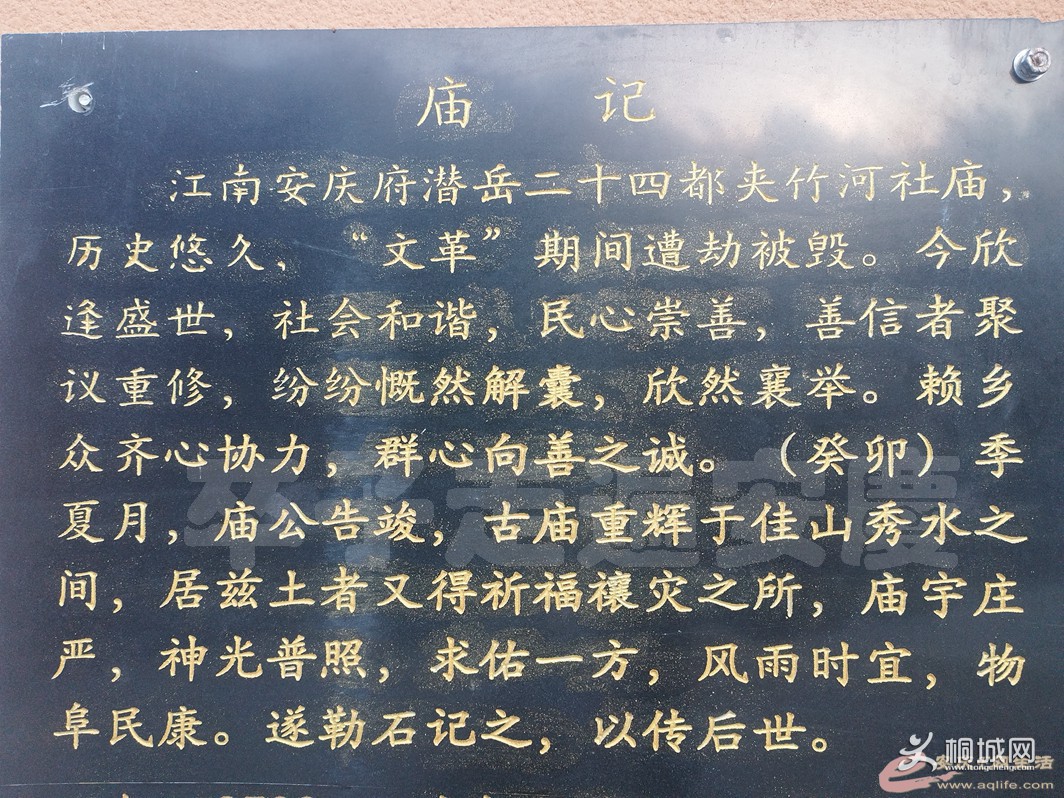 庙 记
江南安庆府潜岳二十四都夹竹河社庙，
历史悠久，“文革”期间遭劫被毁。今欣
逢盛世，社会和谐，民心崇善，善信者聚
议重修，纷纷慨然解囊，欣然襄举。赖乡
众齐心协力，群心向善之诚。（癸卯）季
夏月，庙公告竣，古庙重辉于佳山秀水之
间，居兹土者又得祈福禳灾之所，庙宇庄
严，神光普照，求佑一方，风雨时宜，物
阜民康。遂勒石记之，以传后世。
卒子走过安慶
桐城网
www.itongcheng.com
www.aqlife.com